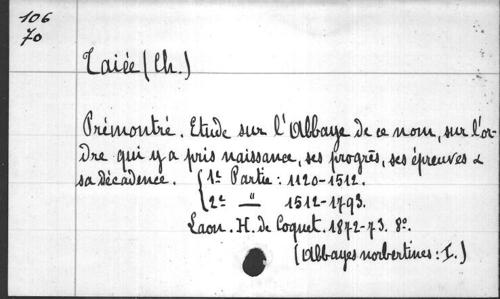 106
70
Taiée (Ch.)
Prémontré. Etude sur l'Abbaye de ce nom, sur l'or-
dre qui y a pris naissance, ses progrès, ses épreuves &
sa décadence. { 1e Partie : 1120-1512.
2e " 1512-1793.
Laon. H. de Coquet. 1872-73. 8º.
(Abbayes norbertines : I.)